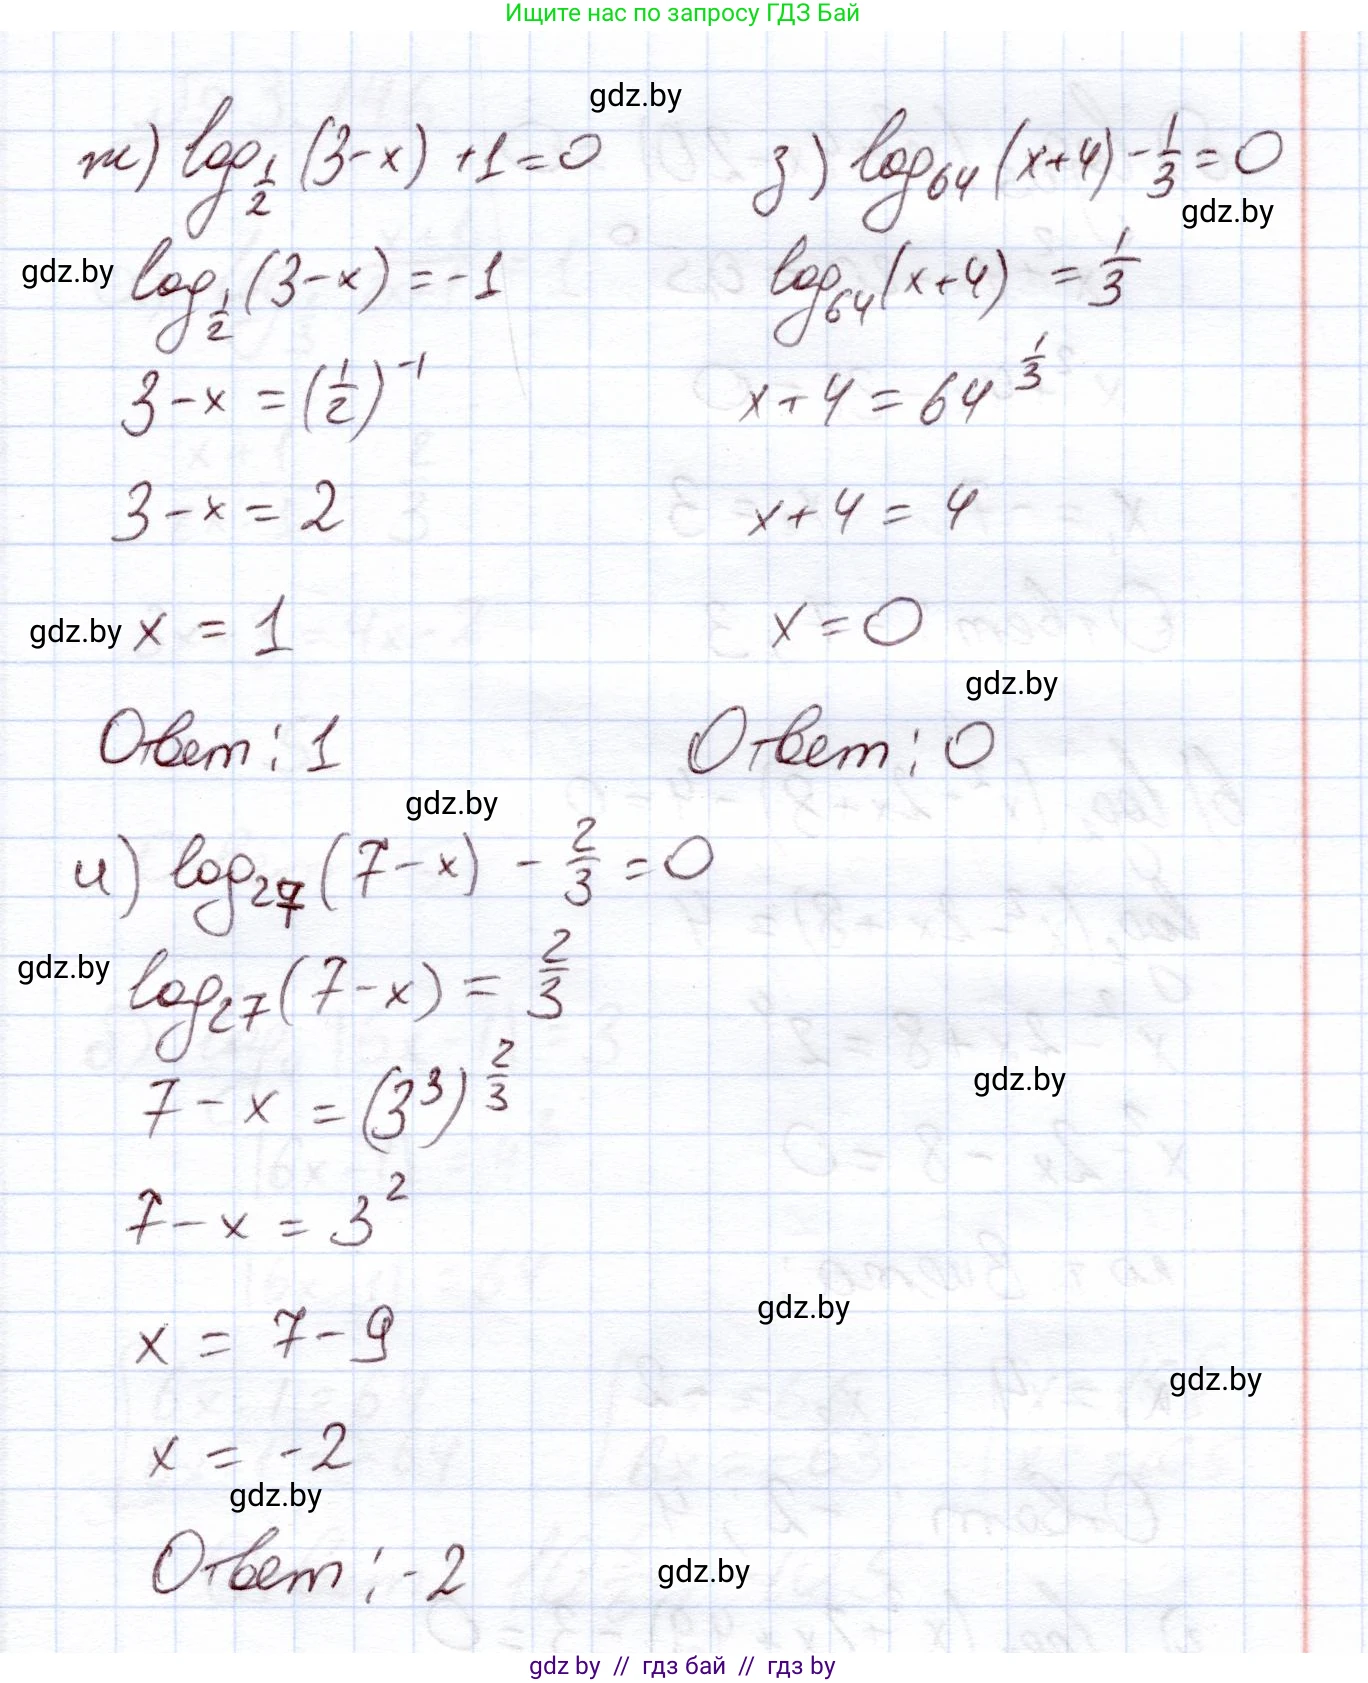 Ищите нас по запросу ГДЗ Бай
gdz.by
ж) log_{1/2} (3-x) +1=0
log_{1/2} (3-x) = -1
3-x = (1/2)^{-1}
3-x = 2
x = 1
Ответ: 1
з) log_{64} (x+4) - 1/3 = 0
gdz.by
gdz.by
log_{64} (x+4) = 1/3
x+4 = 64^{1/3}
x+4 = 4
gdz.by
x=0
gdz.by
Ответ: 0
gdz.by
и) log_{27} (7-x) - 2/3 = 0
gdz.by
log_{27} (7-x) = 2/3
7-x = (3^3)^{2/3}
gdz.by
7-x = 3^2
gdz.by
x = 7-9
gdz.by
x = -2
gdz.by
Ответ: -2
gdz.by
gdz by // гдз бай // гдз by